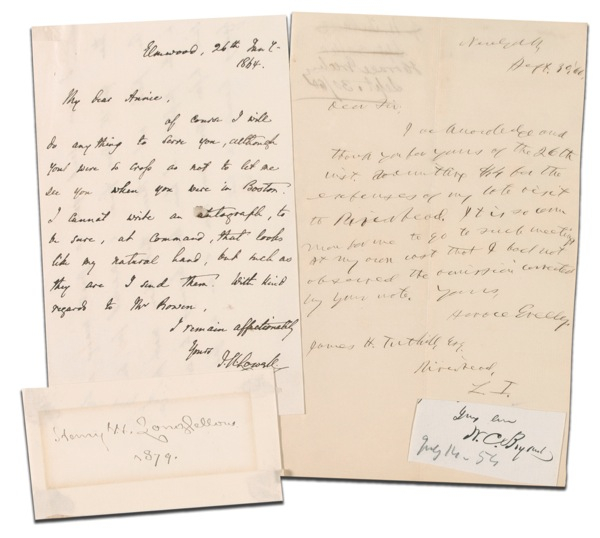 Elmwood, 26th Jan y
1864.
My dear Annie,
of course I will
do any thing to serve you, although
you were so cross as not to let me
see you when you were in Boston.
I cannot write an autograph, to
be sure, at command, that looks
like my natural hand, but such as
they are I send them. With kind
regards to Mr Bowen,
I remain affectionately
Yours
J. R. Lowell.
New York
Sept. 30
Dear Sir,
I acknowledge and
thank you for yours of the 26th
inst. transmitting $4 for the
expenses of my late visit
to Riverhead. It is so com
mon for me to go to such meetings
at my own cost that I had not
observed the omission corrected
by your note. Yours,
Horace Greeley.
James H. Tuthill, Esq.
Riverhead,
L. I.
Henry W. Longfellow
1879.
W. C. Bryant
July 14